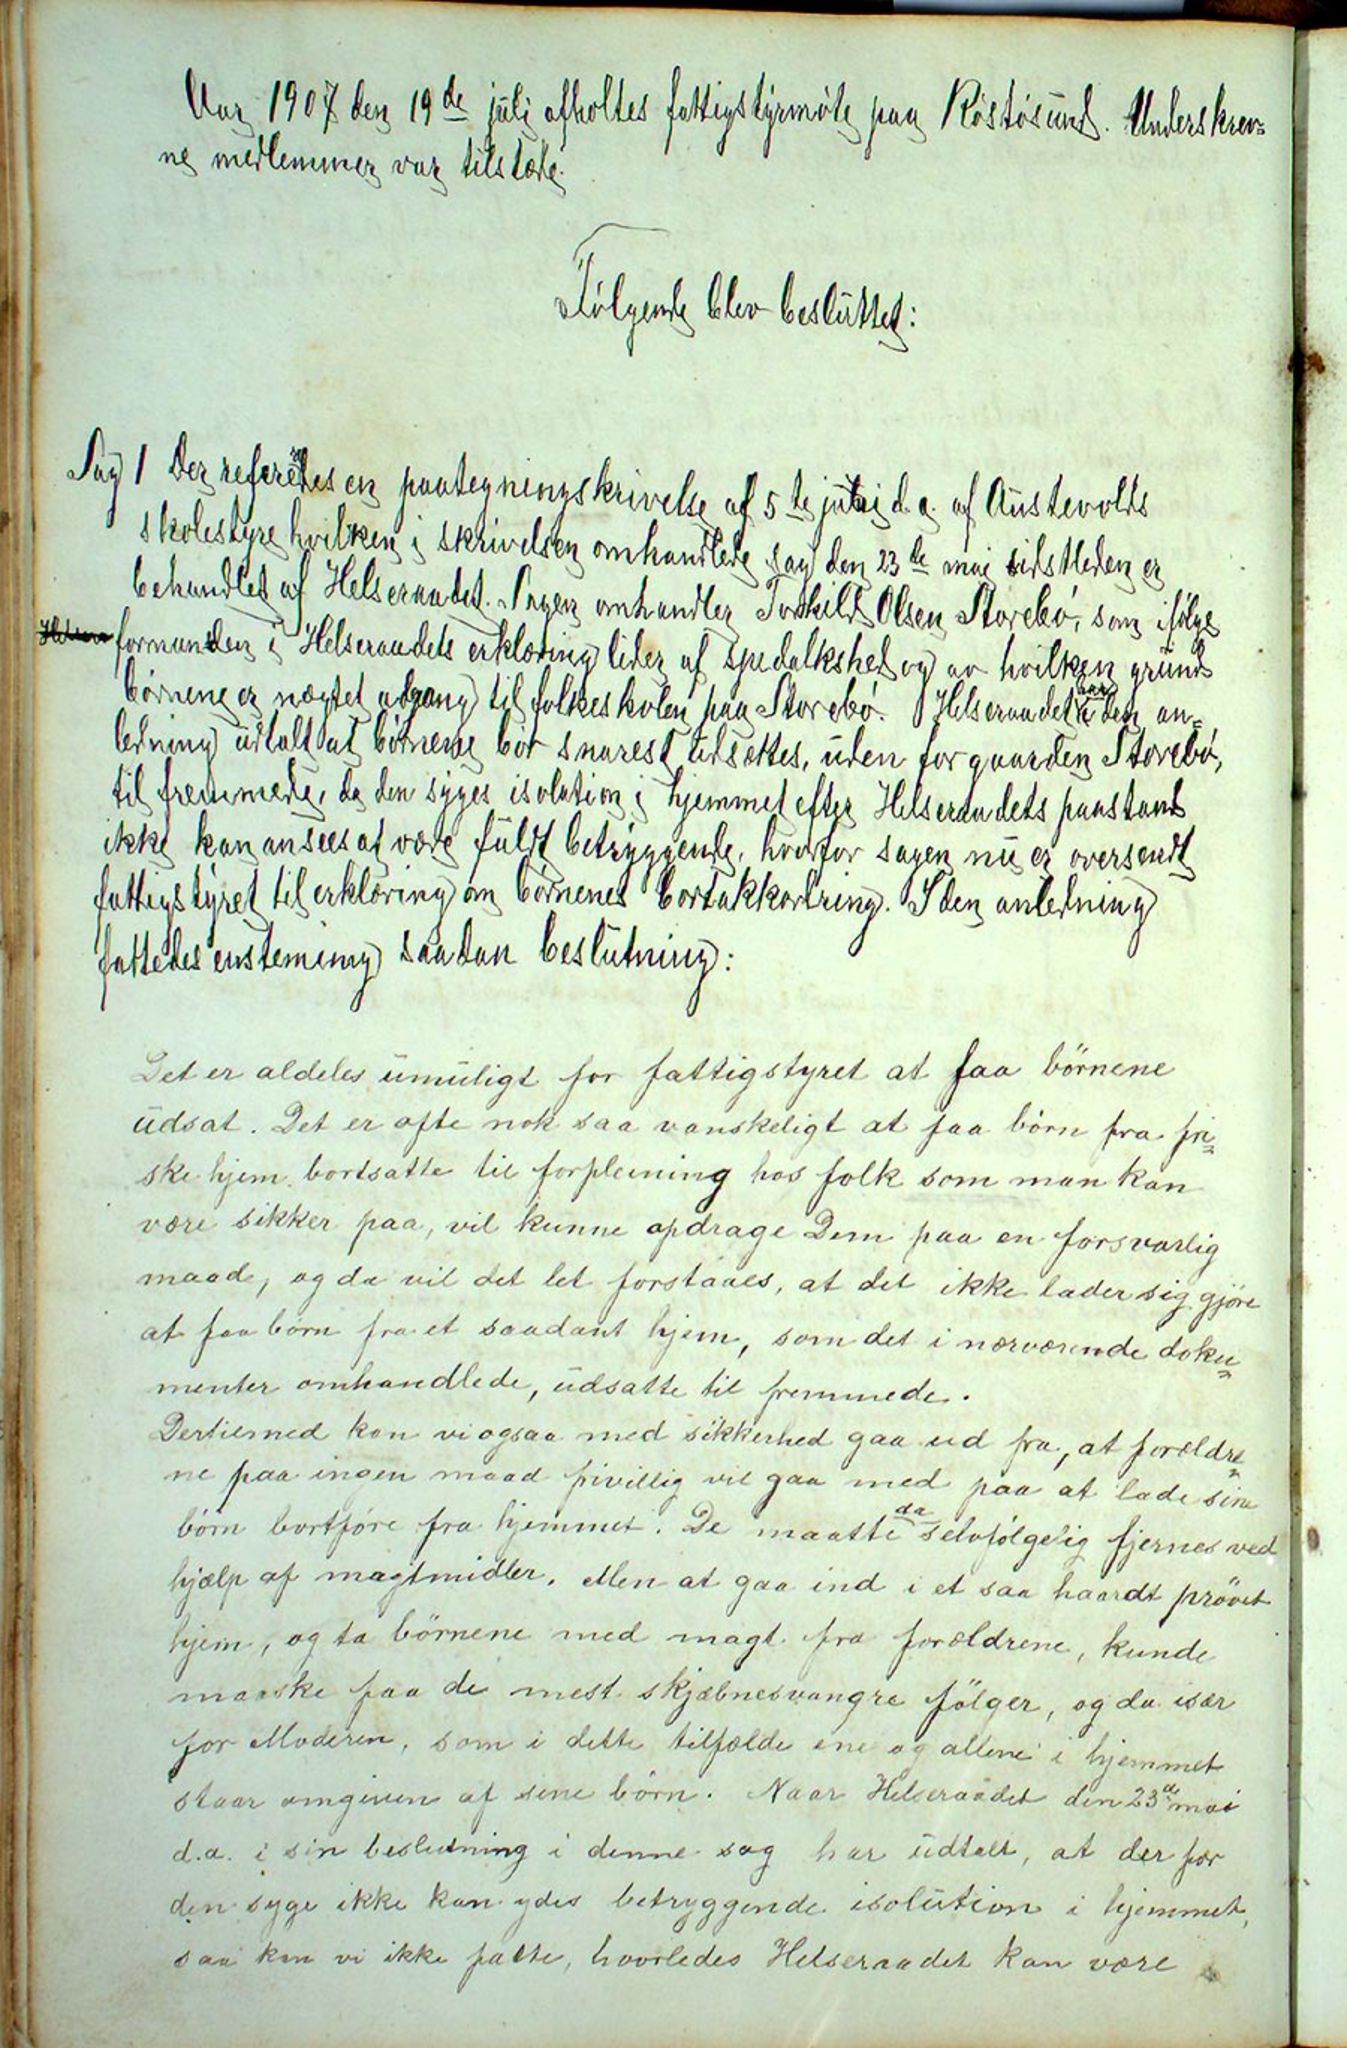 Aar 1907 den 19de juli afholtes fattigstyrmøte paa Røstøsund. Underskrev=
ne medlemmer var tilstæde.
Følgende blev besluttet:
Sag 1 Der refereredes en paategningskrivelse af 5te juli d.a. af Austevolds
skolestyre hvilken i skrivelsen omhandlede sag den 23de mai sidstleden er
behandlet af Helseraadet. Sagen omhandler Torkild Olsen Storebø, som ifølge
formanden i Helseraadets erklæring lider af spedalkshed og av hvilken grund
børnene er nægtet adgang til folkeskolen paa Storebø. Helseraadet har i den an=
ledning udtalt at børnene bør snarest udsættes, uden for gaarden Storebø,
til fremmede, da den syges isolation i hjemmet efter Helseraadets paastand
ikke kan ansees at være fuldt betryggende, hvorfor sagen nu er oversendt
fattigstyret til erklæring om børnenes bortakkordring. I den anledning
fattedes enstemmig saadan beslutning:
Det er aldeles umuligt for fattigstyret at faa børnene
udsat. Det er ofte nok saa vanskeligt at faa børn fra fri=
ske hjem bortsatte til forpleining hos folk som man kan
være sikker paa, vil kunne opdrage Dem paa en forsvarlig
maade, og da vil det let forstaaes, at det ikke lader sig gjøre
at faa børn fra et saadant hjem, som det i nærværende doku=
menter omhandlede, udsatte til fremmede.
Dertilmed kan vi ogsaa med sikkerhed gaa ud fra, at forældre=
ne paa ingen maad frivillig vil gaa med paa at lade sine
børn bortføre fra hjemmet. De maatte da selvfølgelig fjernes ved
hjælp af magtmidler. Men at gaa ind i et saa haardt prøvet
hjem, og ta børnene med magt fra forældrene, kunde
maaske faa de mest skjæbnesvangre følger, og da især
for Moderen, som i dette tilfælde ene og allene i hjemmet
staar omgiven af sine børn. Naar Helseraadet den 23de mai
d.a. i sin beslutning i denne sag har udtalt, at der for
den syge ikke kan ydes betryggende isolution i hjemmet,
saa kan vi ikke fatte, hvorledes Helseraadet kan være